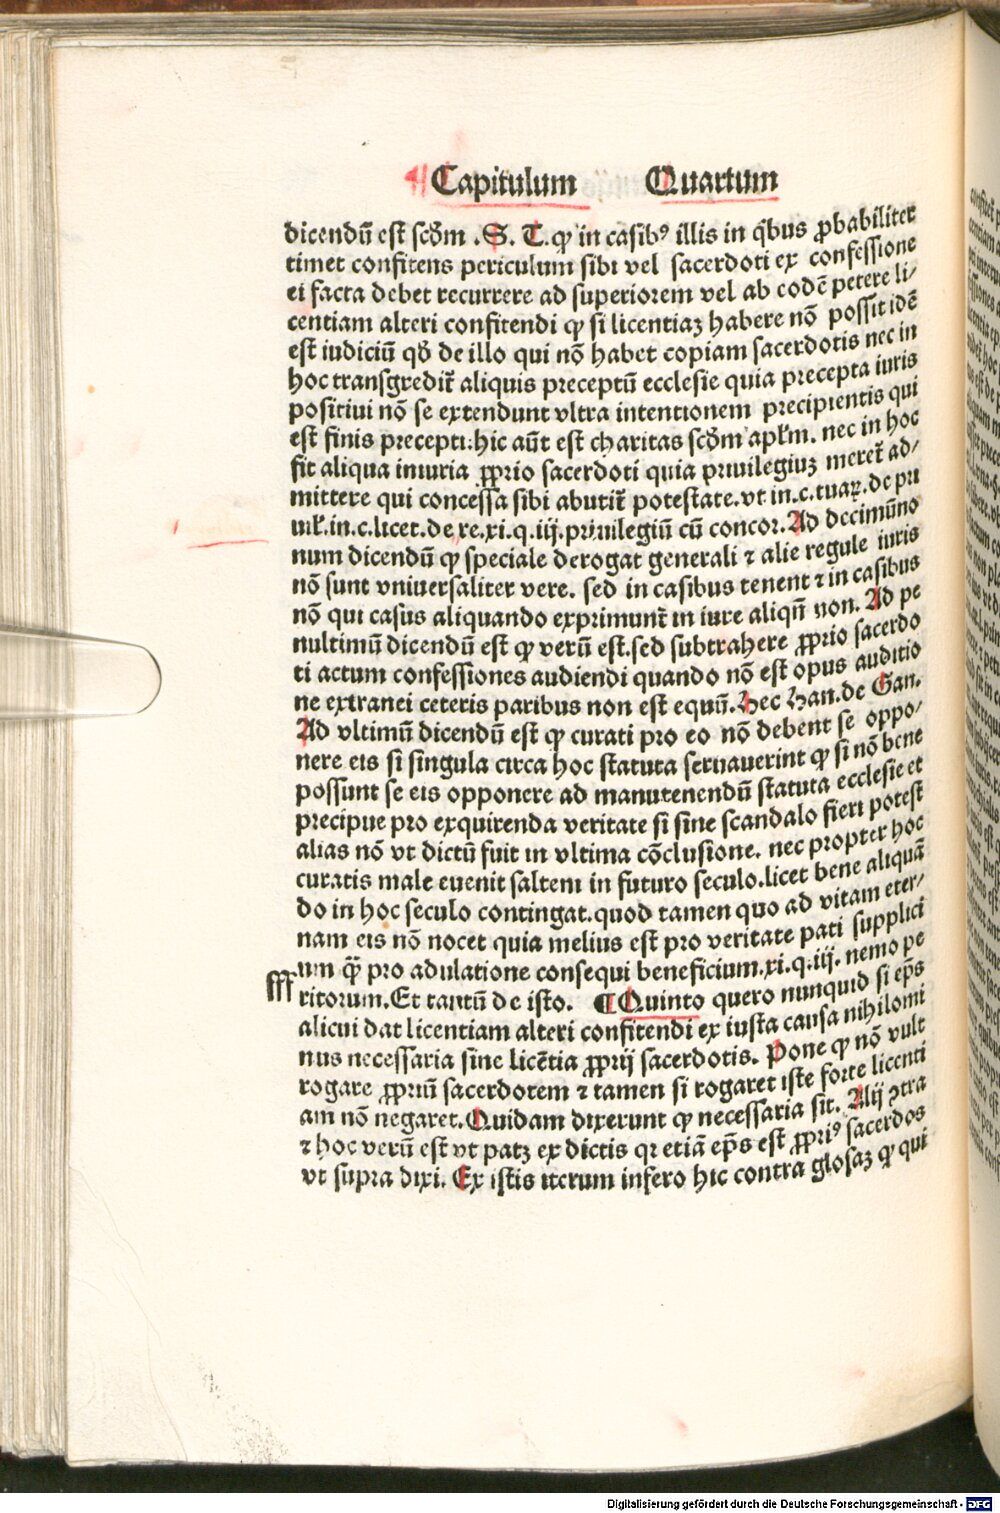 Capitulum Quartum
dicendū est scd̄m .S. T. ꝙ in casibꝰ illis in q̄bus ꝓbabiliter
timet confitens periculum sibi vel sacerdoti ex confessione
ei facta debet recurrere ad superiorem vel ab eodē petere li-
centiam alteri confitendi ꝙ si licentiaꝫ habere nō possit idē
est iudiciū qd̄ de illo qui nō habet copiam sacerdotis nec in
hoc transgredit᷑ aliquis preceptū ecclesie quia precepta iuris
positiui nō se extendunt vltra intentionem precipientis qui
est finis precepti:hic aūt est charitas scd̄m apl̄m. nec in hoc
fit aliqua iniuria ꝓprio sacerdoti quia priuilegiuꝫ meret᷑ ad/
mittere qui concessa sibi abutit᷑ potestate.vt in.c.tuaꝝ.de pri
uil̄.in.c.licet.de re.xi.q.iij.priuilegiū cū concor. Ad decimūno
num dicendū ꝙ speciale derogat generali ⁊ alie regule iuris
nō sunt vniuersaliter vere. sed in casibus tenent ⁊ in casibus
nō qui casus aliquando exprimunt᷑ in iure aliqn̄ non. Ad pe
nultimū dicendū est ꝙ verū est.sed subtrahere ꝓprio sacerdo
ti actum confessiones audiendi quando nō est opus auditio
ne extranei ceteris paribus non est equū. Hec Han. de Gan.
Ad vltimū dicendū est ꝙ curati pro eo nō debent se oppo/
nere eis si singula circa hoc statuta seruauerint ꝙ si nō bene
possunt se eis opponere ad manutenendū statuta ecclesie et
precipue pro exquirenda veritate si sine scandalo fieri potest
alias nō vt dictū fuit in vltima cōclusione. nec propter hoc
curatis male euenit saltem in futuro seculo.licet bene aliquā
do in hoc seculo contingat.quod tamen quo ad vitam eter/
nam eis nō nocet quia melius est pro veritate pati supplici
um q̄ȝ pro adulatione consequi beneficium.xi.q.iij. nemo pe
fff ritorum. Et tantū de isto. ¶ Quinto quero nunquid si ep̄s
alicui dat licentiam alteri confitendi ex iusta causa nihilomi
nus necessaria sine licētia ꝓprij sacerdotis. Pone ꝙ nō vult
rogare ꝓpriū sacerdotem ⁊ tamen si rogaret iste forte licenti
am nō negaret. Quidam dixerunt ꝙ necessaria sit. Alij ꝯtra
⁊ hoc verū est vt patꝫ ex dictis qr etiā ep̄s est ꝓpriꝰ sacerdos
vt supra dixi. Ex istis iterum infero hic contra glosaꝫ ꝙ qui
Digitalisierung gefördert durch die Deutsche Forschungsgemeinschaft - DFG